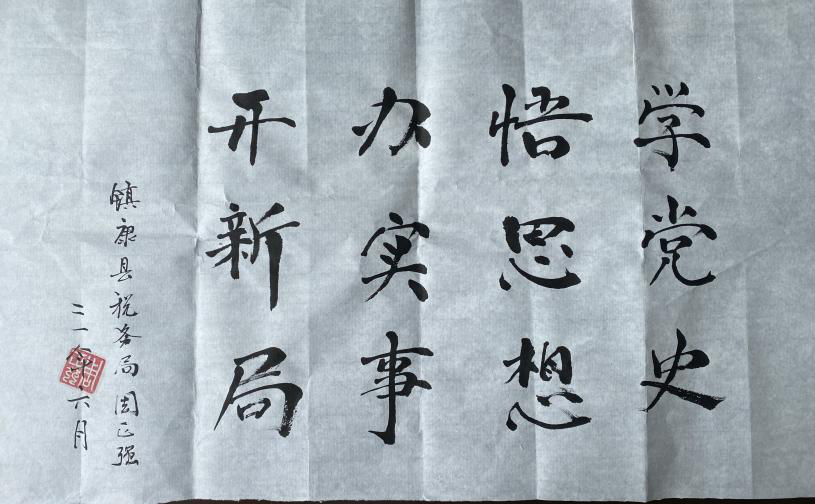 学党史
悟思想
办实事
开新局
镇康县税务局周正强
二一年六月